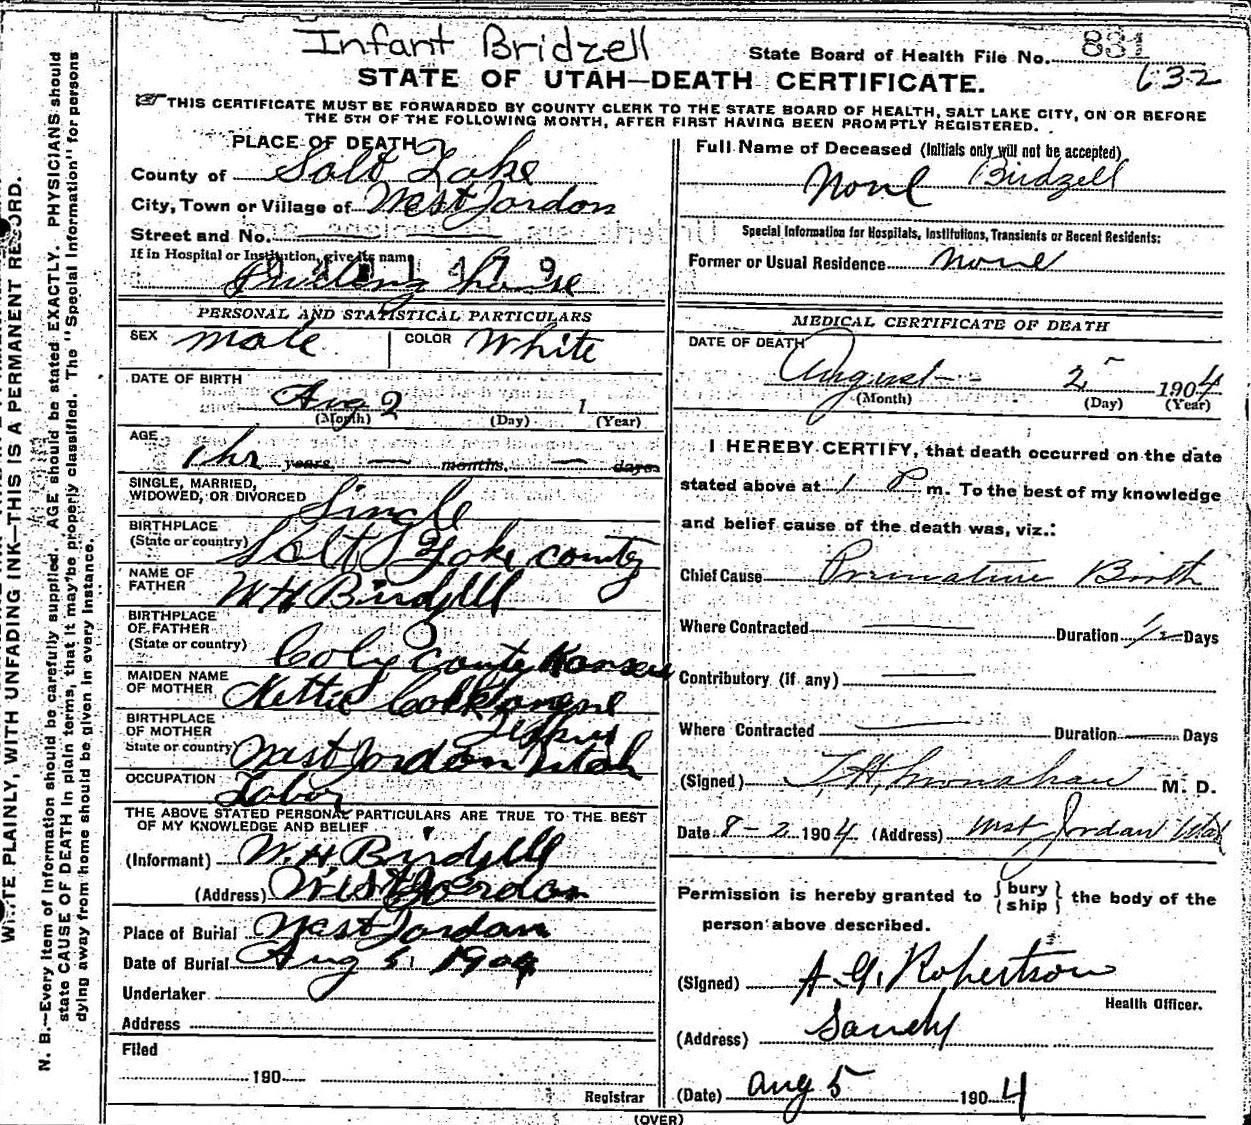 Infant Bridzell
State Board of Health File No. 831
632
STATE OF UTAH—DEATH CERTIFICATE.
THIS CERTIFICATE MUST BE FORWARDED BY COUNTY CLERK TO THE STATE BOARD OF HEALTH, SALT LAKE CITY, ON OR BEFORE
THE 5TH OF THE FOLLOWING MONTH, AFTER FIRST HAVING BEEN PROMPTLY REGISTERED.
WRITE PLAINLY, WITH UNFADING INK—THIS IS A PERMANENT RECORD.
N. B.—Every item of information should be carefully supplied. AGE should be stated EXACTLY. PHYSICIANS should
state CAUSE OF DEATH in plain terms, that it may be properly classified. The "Special Information" for persons
dying away from home should be given in every instance.
PLACE OF DEATH
County of Salt Lake
City, Town or Village of West Jordon
Street and No.
If in Hospital or Institution, give its name
house
PERSONAL AND STATISTICAL PARTICULARS
SEX male COLOR White
DATE OF BIRTH
Aug 2 1
(Month) (Day) (Year)
AGE
1 hr years, — months, — days
SINGLE, MARRIED,
WIDOWED, OR DIVORCED Single
BIRTHPLACE
(State or country) Salt Lake county
NAME OF
FATHER W H Birdzell
BIRTHPLACE
OF FATHER
(State or country)
MAIDEN NAME
OF MOTHER Nettie
BIRTHPLACE
OF MOTHER
State or country) West Jordon Utah
OCCUPATION Labor
THE ABOVE STATED PERSONAL PARTICULARS ARE TRUE TO THE BEST
OF MY KNOWLEDGE AND BELIEF
(Informant) W. H Birdzell
(Address) West Jordon
Place of Burial West Jordan
Date of Burial Aug 5 1904
Undertaker
Address
Filed
190
Registrar
Full Name of Deceased (Initials only will not be accepted)
None Birdzell
Special Information for Hospitals, Institutions, Transients or Recent Residents:
Former or Usual Residence None
MEDICAL CERTIFICATE OF DEATH
DATE OF DEATH
August 2 1904
(Month) (Day) (Year)
I HEREBY CERTIFY, that death occurred on the date
stated above at 1 P m. To the best of my knowledge
and belief cause of the death was, viz.:
Chief Cause Premature Birth
Where Contracted — Duration 1/2 Days
Contributory (if any) —
Where Contracted — Duration — Days
(Signed) M. D.
Date 8-2 1904 (Address) West Jordan Utah
Permission is hereby granted to { bury ship } the body of the
person above described.
(Signed) A. G. Robertson
Health Officer.
(Address) Sandy
(Date) Aug 5 1904
(OVER)